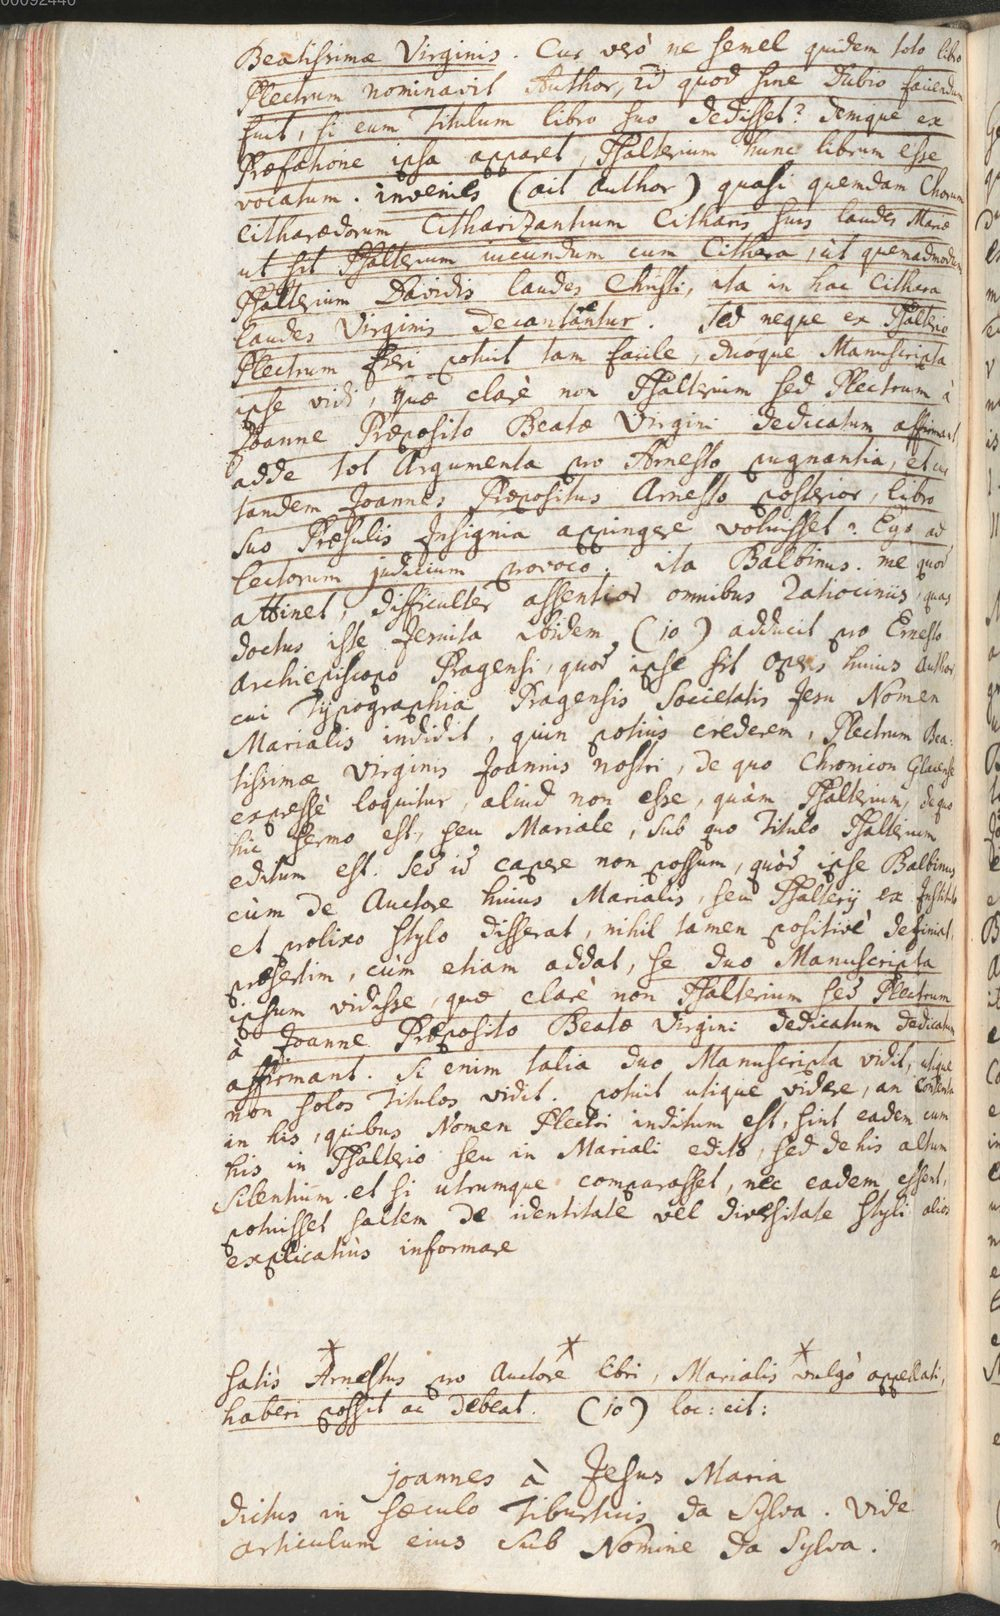 00092440
Beatissimæ Virginis. Cur verò ne semel quidem toto libro
Plectrum nominavit Author, id quod sine dubio faciendum
fuit, si eum Titulum libro suo dedisset? denique ex
Præfatione ipsa apparet, Psalterium hunc librum esse
vocatum. invenies (ait Author) quasi quemdam Chorum
Citharædorum Citharizantium Citharis suis laudes Mariæ
ut sit Psalterium iucundum cum Cithara, ut quemadmodum
Psalterium Davidis laudes Christi, ita in hac Cithara
laudes Virginis decantentur. Sed neque ex Psalterio
Plectrum fieri potuit tam facile, duoque Manuscripta
ipse vidi, quæ clarè non Psalterium sed Plectrum à
Joanne Præposito Beatæ Virgini dedicatum affirmant
adde tot Argumenta pro Arnesto pugnantia, et cur
tandem Joannes Præpositus Arnesto posterior, libro
suo Præsulis Insignia appingere voluisset? Ego ad
lectorum judicium provoco. ita Balbinus. me quod
attinet, difficulter assentior omnibus Ratiociniis, quas
doctus iste Jesuita ibidem (10) adducit pro Ernesto
Archiepiscopo Pragensi, quod ipse sit operis huius Author
cui Typographia Pragensis Societatis Jesu Nomen
Marialis indidit, quin potiùs crederem, Plectrum Bea-
tissimæ Virginis Joannis nostri, de quo Chronicon Glacense
expressè loquitur, aliud non esse, quàm Psalterium, de quo
hic sermo est, seu Mariale, sub quo Titulo Psalterium
editum est. Sed id capere non possum, quòd ipse Balbinus
cùm de Auctore huius Marialis, seu Psalterij ex Instituto
et prolixo stylo disserat, nihil tamen positivè definiat,
præsertim, cùm etiam addat, se duo Manuscripta
ipsum vidisse, quæ clarè non Psalterium sed Plectrum
à Joanne Præposito Beatæ Virgini dedicatum dedicatum
affirmant. Si enim talia duo Manuscripta vidit, utique
non solos Titulos vidit. potuit utique videre, an contenta
in his, quibus Nomen Plectri inditum est, sint eadem cum
his in Psalterio seu in Mariali edito, sed de his altum
Silentium. et si utrumque comparasset, nec eadem essent,
potuisset saltem de identitate vel diversitate styli alios
explicatiùs informare
satis Arnestus pro Auctore libri, Marialis vulgò appellati,
haberi possit ac debeat. (10) loc: cit:
Joannes à Jesus Maria
dictus in sæculo Tiburtius da Sylva. Vide
articulum eius sub Nomine da Sylva.